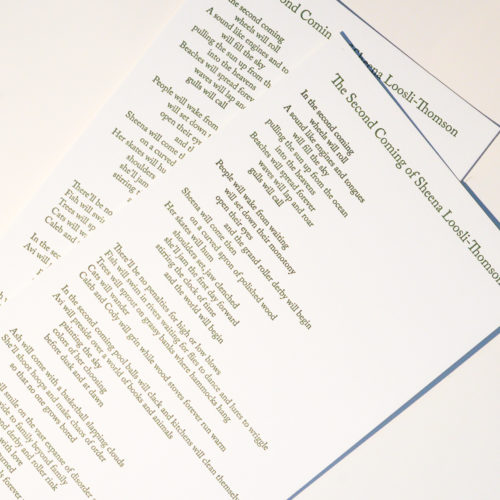 ond Comin
Sheena Loosli-Thomson
the second coming
wheels will roll
A sound like engines and to
will fill the sky
pulling the sun up from th
into the heavens
Beaches will spread
waves will lap and
gulls will call
People will wake from
will set down
open their eye
and
Sheena will come th
on a curved
Her skates will hu
shoulders
she'll jam
stirring
There'll be no
Fish will swi
Trees will sp
Cats will w
Caleb and
In the sec
Avi will
The Second Coming of Sheena Loosli-Thomson
In the second coming
wheels will roll
A sound like engines and tongues
will fill the sky
pulling the sun up from the ocean
into the heavens
Beaches will spread forever
waves will lap and roar
gulls will call
People will wake from waiting
will set down their monotony
open their eyes
and the grand roller derby will begin
Sheena will come then
on a curved apron of polished wood
Her skates will hum
shoulders set, jaw clenched
she'll jam the first day forward
stirring the clock of time
and the world will begin
There'll be no penalties for high or low blows
Fish will swim in rivers waiting for flies to dance and lures to wriggle
Trees will sprout on grassy banks where hammocks hang
Cats will wander
Caleb and Cody will grin while wood stoves forever run warm
In the second coming pool balls will clack and kitchens will clean themselv
Avi will preside over a world of books and animals
painting the sky
colors of her choosing
before dark and at dawn
Ash will come with a basketball slapping clouds
She'll shoot hoops and make chaos of order
so that no one grows bored
will smile on the vast expanse of disorder
wide to family beyond family
nd derby and roller rink
with love
urned
ly forever